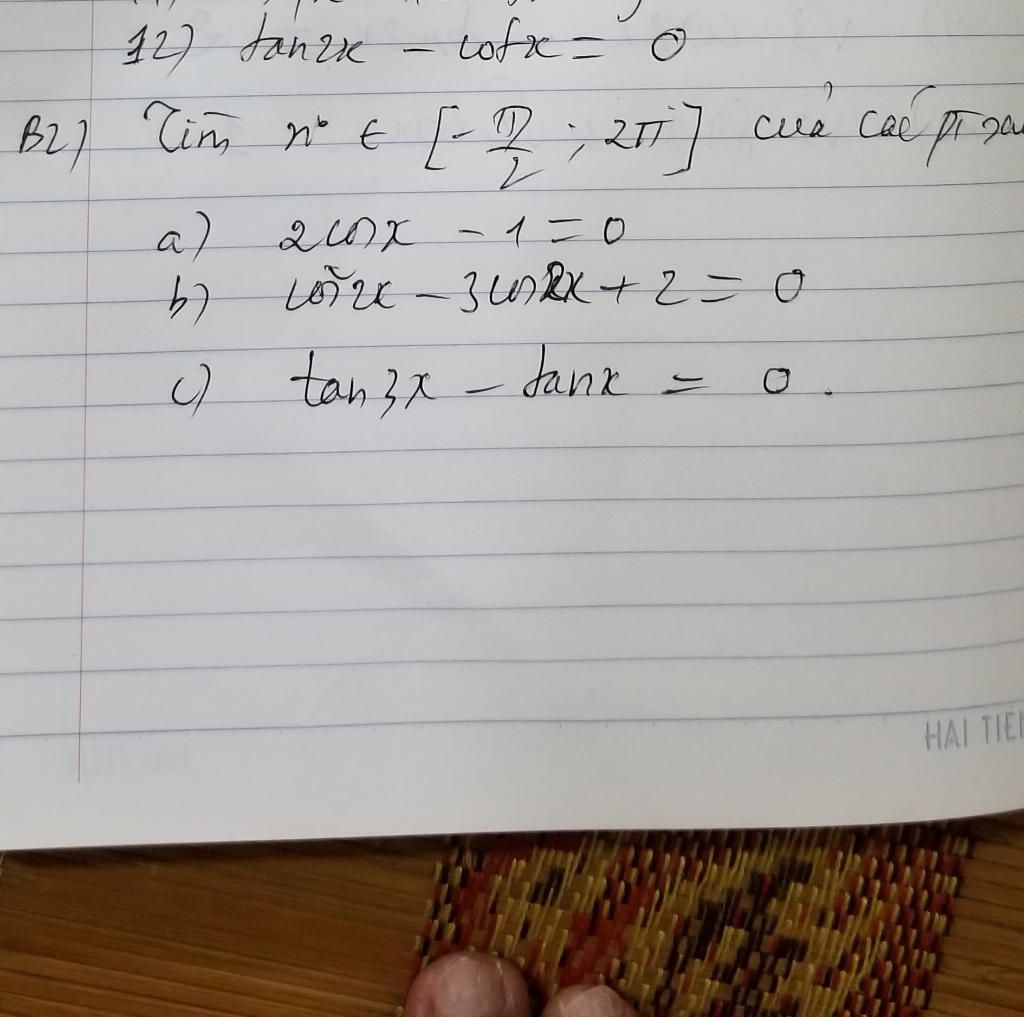 12) tan2x - cotx = 0
B2) Tìm n° ∈ [-π/2 ; 2π] của các pt sau
a) 2cosx - 1 = 0
b) cos²2x - 3cos2x + 2 = 0
c) tan3x - tanx = 0.
HAI TIEN